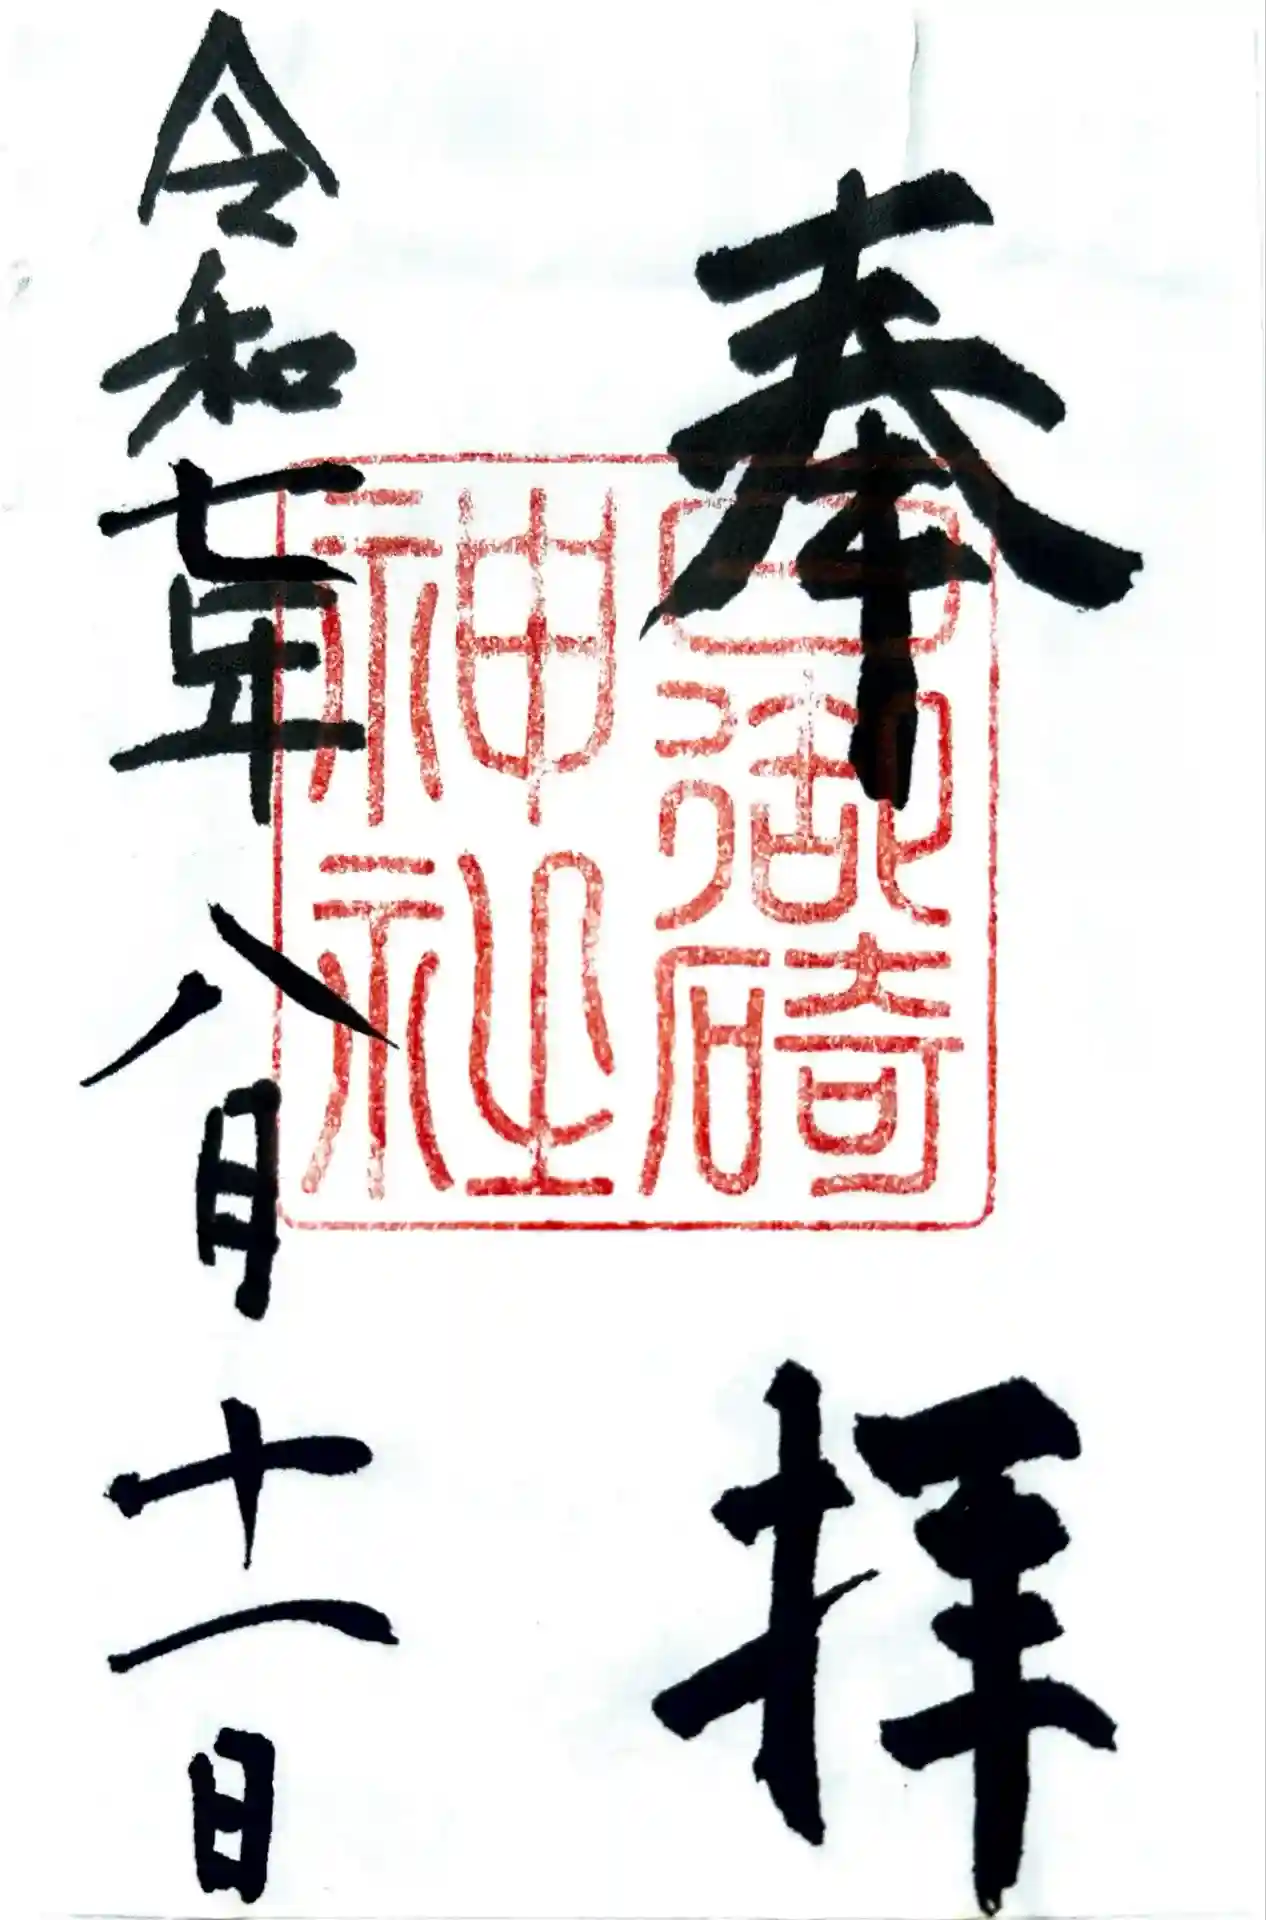 奉拝
日御碕
神社
令和七年八月十一日